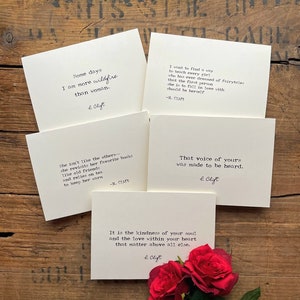 Some days
I am more wildfire
than woman.
R. Clift
I want to find a way
to teach every girl
who has ever dreamed of fairytales
that the first person
she is to fall in love with
should be herself.
-R. Clift
She isn't like the others—
she revisits her favorite books
like old friends
and relies on tea
to keep her warm.
-R. Clift
That voice of yours
was made to be heard.
R. Clift
It is the kindness of your soul
and the love within your heart
that matter above all else.
R. Clift